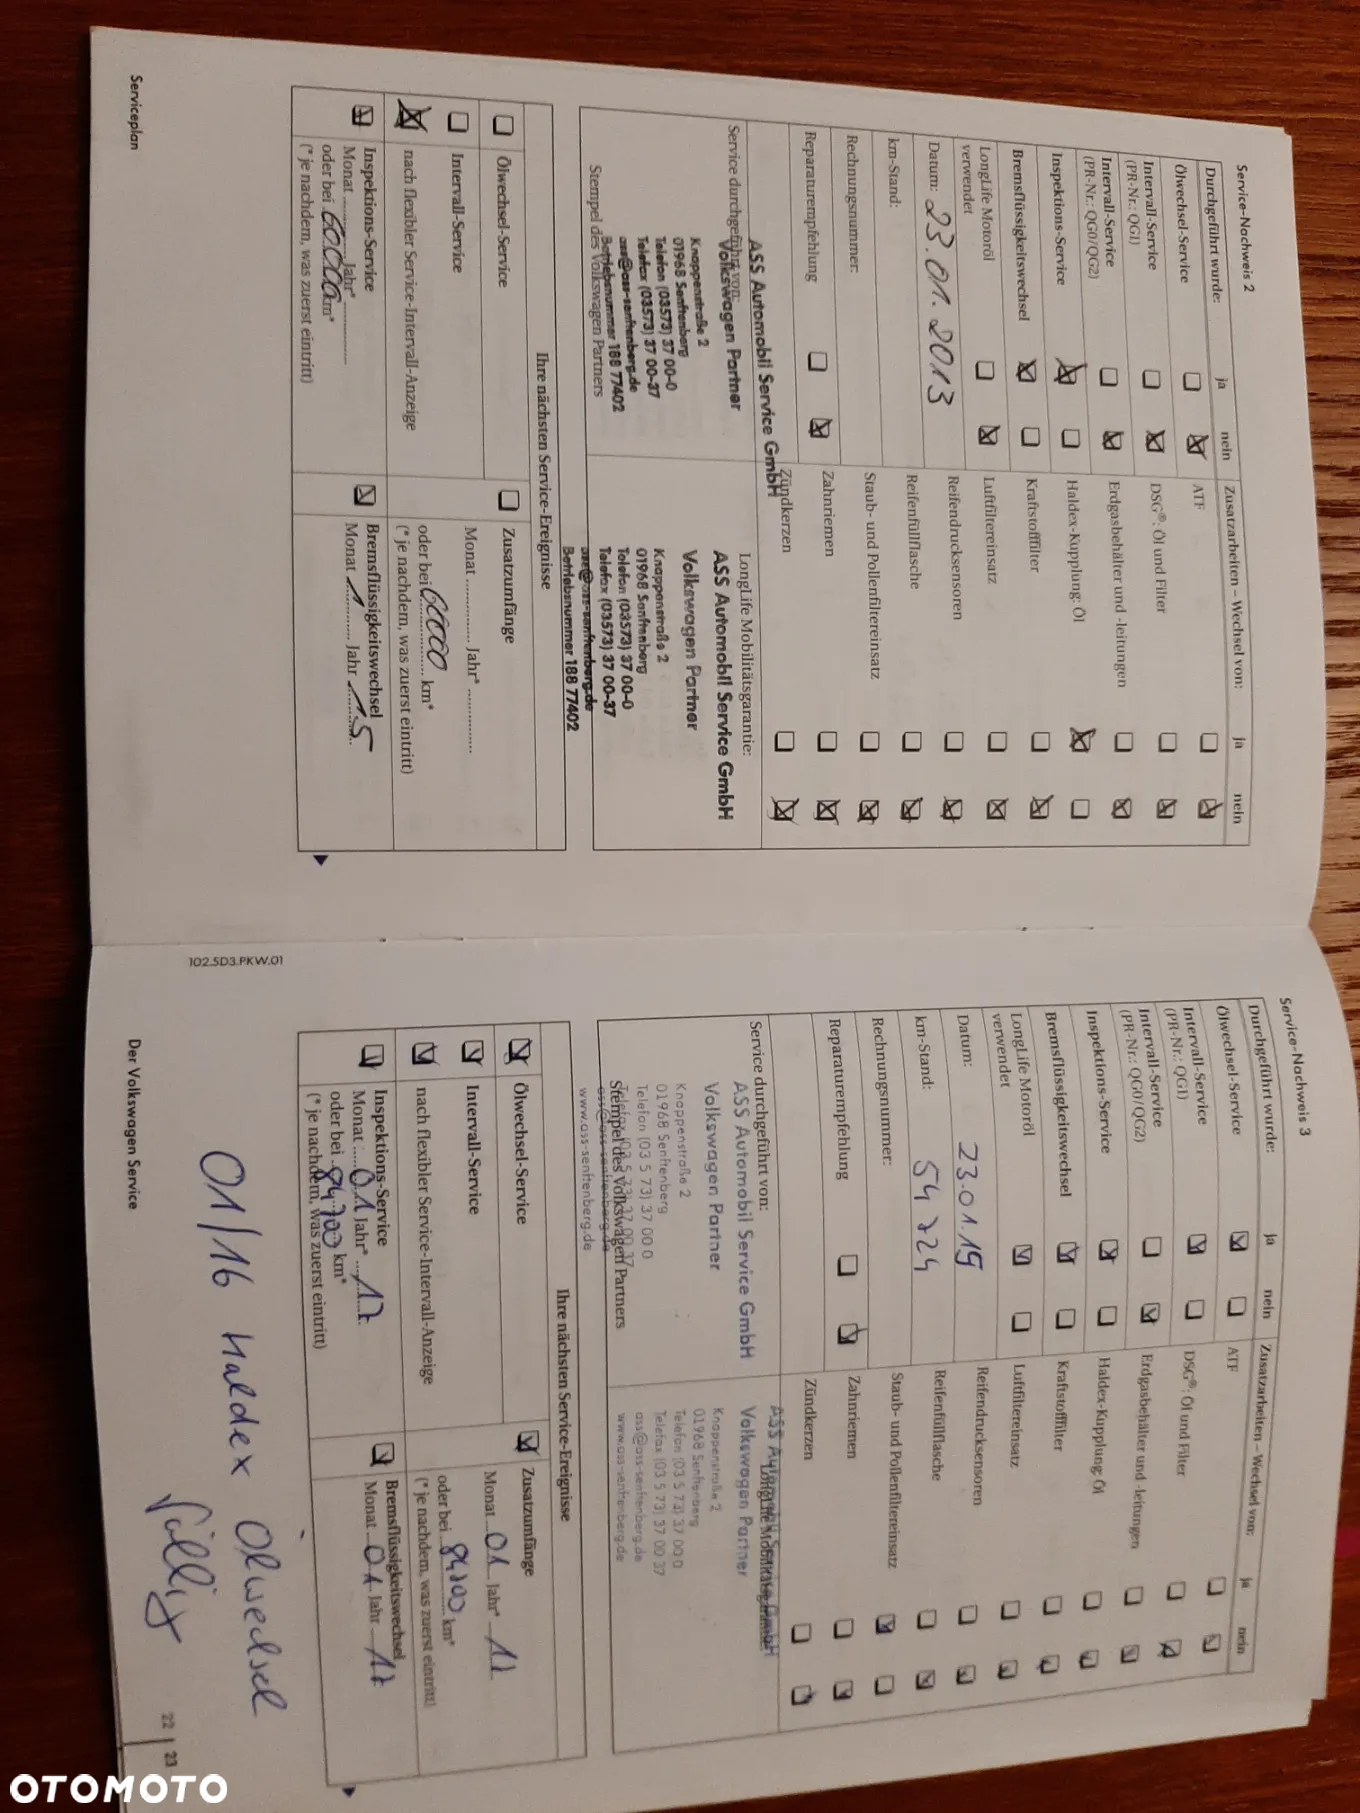 Service-Nachweis 2
Durchgeführt wurde: ja nein Zusatzarbeiten – Wechsel von: ja nein
Ölwechsel-Service ATF
Intervall-Service DSG®: Öl und Filter
(PR-Nr.: QG1)
Intervall-Service Erdgasbehälter und -leitungen
(PR-Nr.: QG0/QG2)
Inspektions-Service Haldex-Kupplung: Öl
Bremsflüssigkeitswechsel Kraftstofffilter
LongLife Motoröl Luftfiltereinsatz
verwendet
Datum: 23.01.2013 Reifendrucksensoren
km-Stand: Reifenfüllflasche
Rechnungsnummer: Staub- und Pollenfiltereinsatz
Reparaturempfehlung Zahnriemen
Zündkerzen
Service durchgeführt von:
ASS Automobil Service GmbH
Volkswagen Partner
Knappenstraße 2
01968 Senftenberg
Telefon (03573) 37 00-0
Telefax (03573) 37 00-37
ass@ass-senftenberg.de
Betriebsnummer 188 77402
Stempel des Volkswagen Partners
LongLife Mobilitätsgarantie:
ASS Automobil Service GmbH
Volkswagen Partner
Knappenstraße 2
01968 Senftenberg
Telefon (03573) 37 00-0
Telefax (03573) 37 00-37
ass@ass-senftenberg.de
Betriebsnummer 188 77402
Ihre nächsten Service-Ereignisse
Ölwechsel-Service Zusatzumfänge
Intervall-Service Monat ............ Jahr* ............
nach flexibler Service-Intervall-Anzeige oder bei 60000 km*
(* je nachdem, was zuerst eintritt)
Inspektions-Service Bremsflüssigkeitswechsel
Monat ............ Jahr* ............ Monat 1 Jahr 15
oder bei 60000 km*
(* je nachdem, was zuerst eintritt)
Serviceplan
102.5D3.PKW.01
Service-Nachweis 3
Durchgeführt wurde: ja nein Zusatzarbeiten – Wechsel von: ja nein
Ölwechsel-Service ATF
Intervall-Service DSG®: Öl und Filter
(PR-Nr.: QG1)
Intervall-Service Erdgasbehälter und -leitungen
(PR-Nr.: QG0/QG2)
Inspektions-Service Haldex-Kupplung: Öl
Bremsflüssigkeitswechsel Kraftstofffilter
LongLife Motoröl Luftfiltereinsatz
verwendet
Datum: 23.01.15 Reifendrucksensoren
km-Stand: 54724 Reifenfüllflasche
Rechnungsnummer: Staub- und Pollenfiltereinsatz
Reparaturempfehlung Zahnriemen
Zündkerzen
Service durchgeführt von:
ASS Automobil Service GmbH
Volkswagen Partner
Knappenstraße 2
01968 Senftenberg
Telefon (03 5 73) 37 00 0
Telefax (03 5 73) 37 00 37
Stempel des Volkswagen Partners
ass@ass-senftenberg.de
www.ass-senftenberg.de
LongLife Mobilitätsgarantie:
ASS Automobil Service GmbH
Volkswagen Partner
Knappenstraße 2
01968 Senftenberg
Telefon (03 5 73) 37 00 0
Telefax (03 5 73) 37 00 37
ass@ass-senftenberg.de
www.ass-senftenberg.de
Ihre nächsten Service-Ereignisse
Ölwechsel-Service Zusatzumfänge
Intervall-Service Monat 01 Jahr* 17
nach flexibler Service-Intervall-Anzeige oder bei 84700 km*
(* je nachdem, was zuerst eintritt)
Inspektions-Service Bremsflüssigkeitswechsel
Monat 01 Jahr* 17 Monat 01 Jahr 17
oder bei 84700 km*
(* je nachdem, was zuerst eintritt)
01/16 Haldex Ölwechsel
Der Volkswagen Service 22 | 23
OTOMOTO